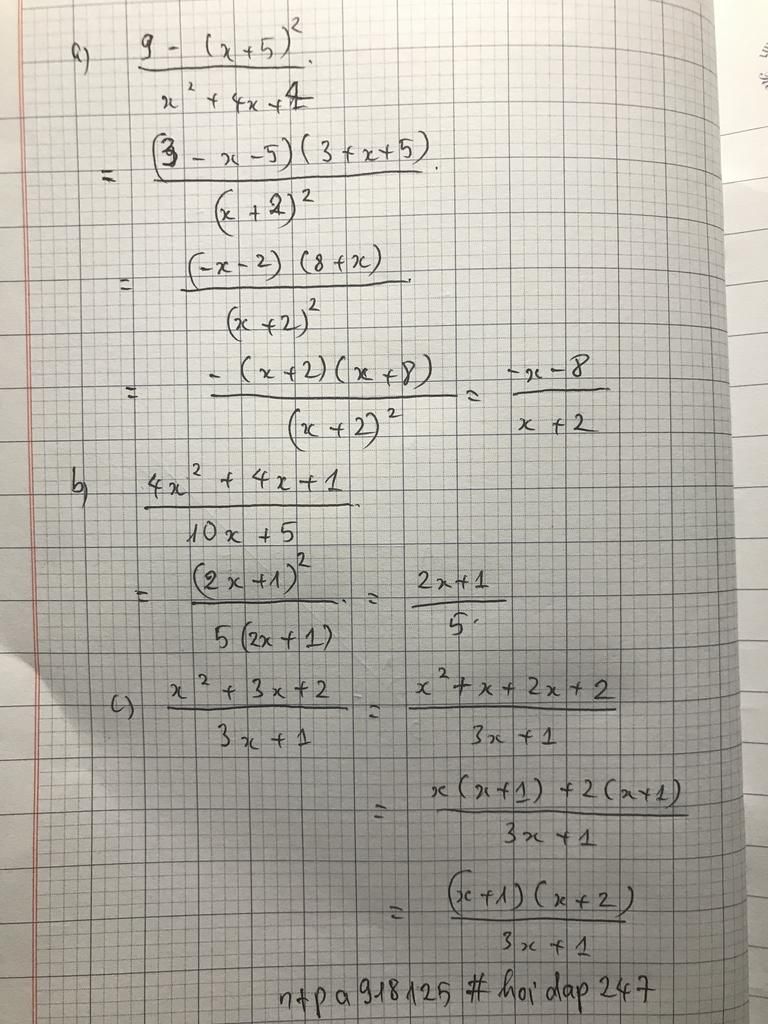 a) 9 - (x+5)² / x² + 4x + 4
= (3 - x - 5)(3 + x + 5) / (x + 2)²
= (-x - 2) (8 + x) / (x + 2)²
= - (x + 2)(x + 8) / (x + 2)² = -x - 8 / x + 2
b) 4x² + 4x + 1 / 10x + 5
= (2x + 1)² / 5(2x + 1) = 2x + 1 / 5
c) x² + 3x + 2 / 3x + 1 = x² + x + 2x + 2 / 3x + 1
= x(x+1) + 2(x+1) / 3x + 1
= (x+1)(x+2) / 3x + 1
ntpa918125 # hoidap247